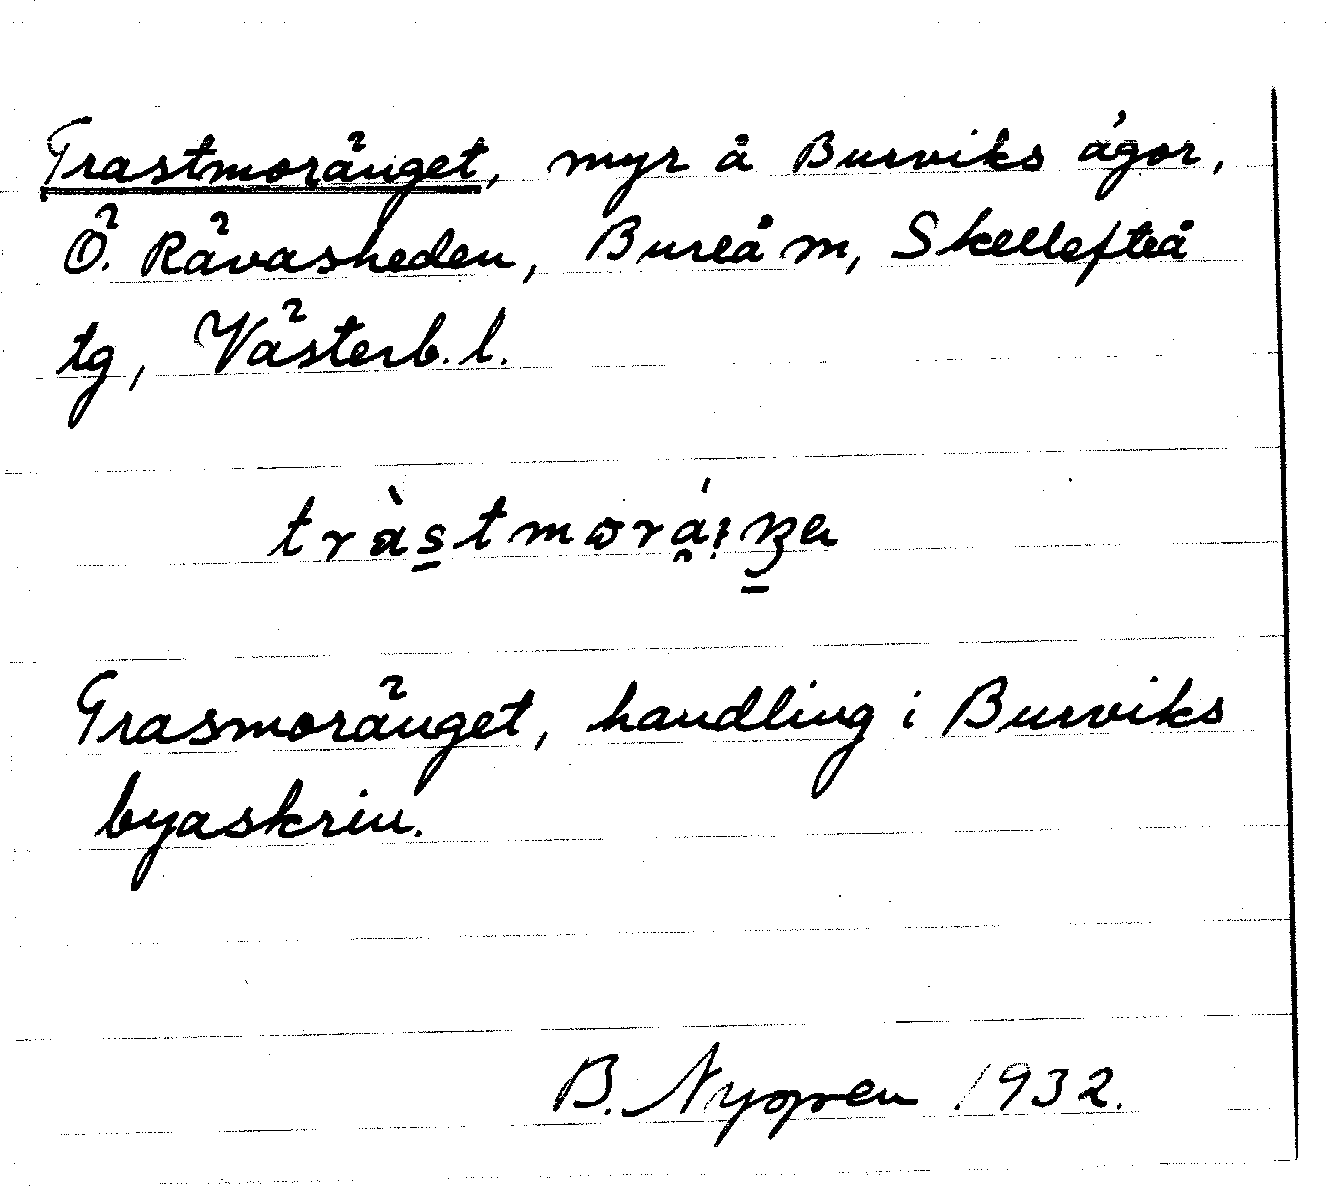 Trastmoränget, myr å Burviks ägor,
Ö. Rävasheden, Bureå m, Skellefteå
tg, Västerb. l.
tràstmoráṇŋa
Trasmoränget, handling i Burviks
byaskrin.
B. Nygren 1932.